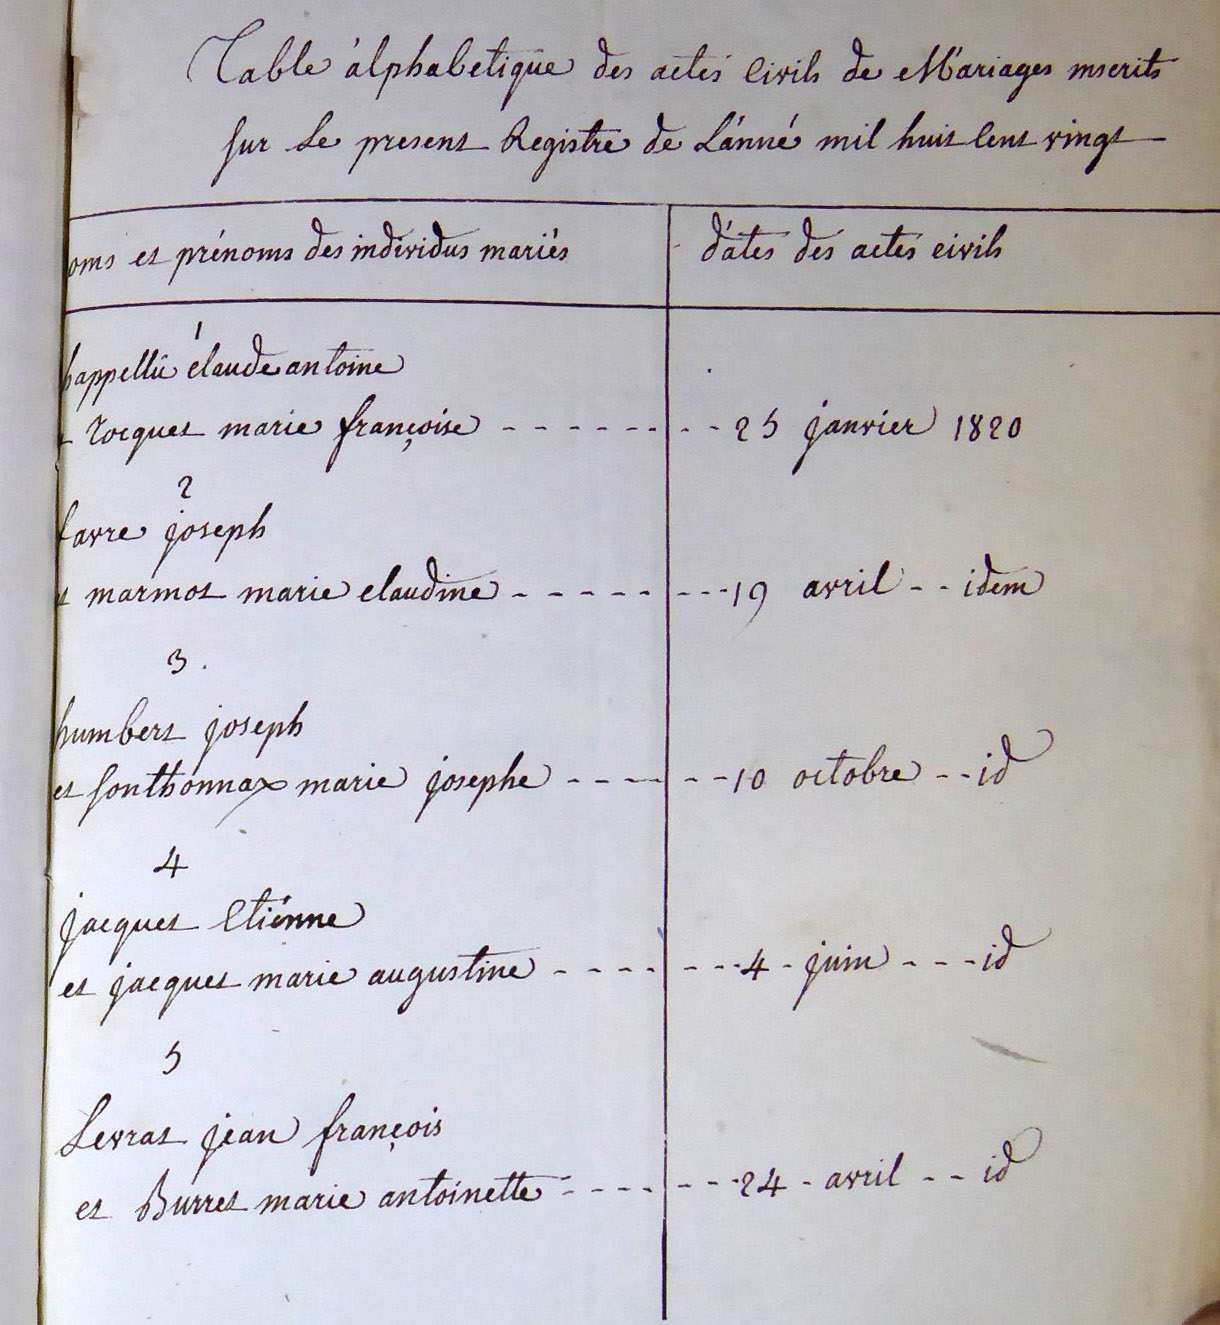 Table alphabetique des actes Civils de Mariages inscrits
sur Le present Registre de L'année mil huit Cent vingt
oms et prénoms des individus mariés dates des actes civils
1
happellü claude antoine
t rocquet marie françoise - - - - - - - - 25 janvier 1820
2
favre joseph
t marmot marie claudine - - - - - - - - 19 avril - - idem
3
humbert joseph
et sonthonnax marie josephe - - - - - - 10 octobre - - id
4
jacquet Etiénne
et jacquet marie augustine - - - - - - - 4 - juin - - - id
5
Levrat jean françois
et Burret marie antoinette - - - - - - - 24 - avril - - id